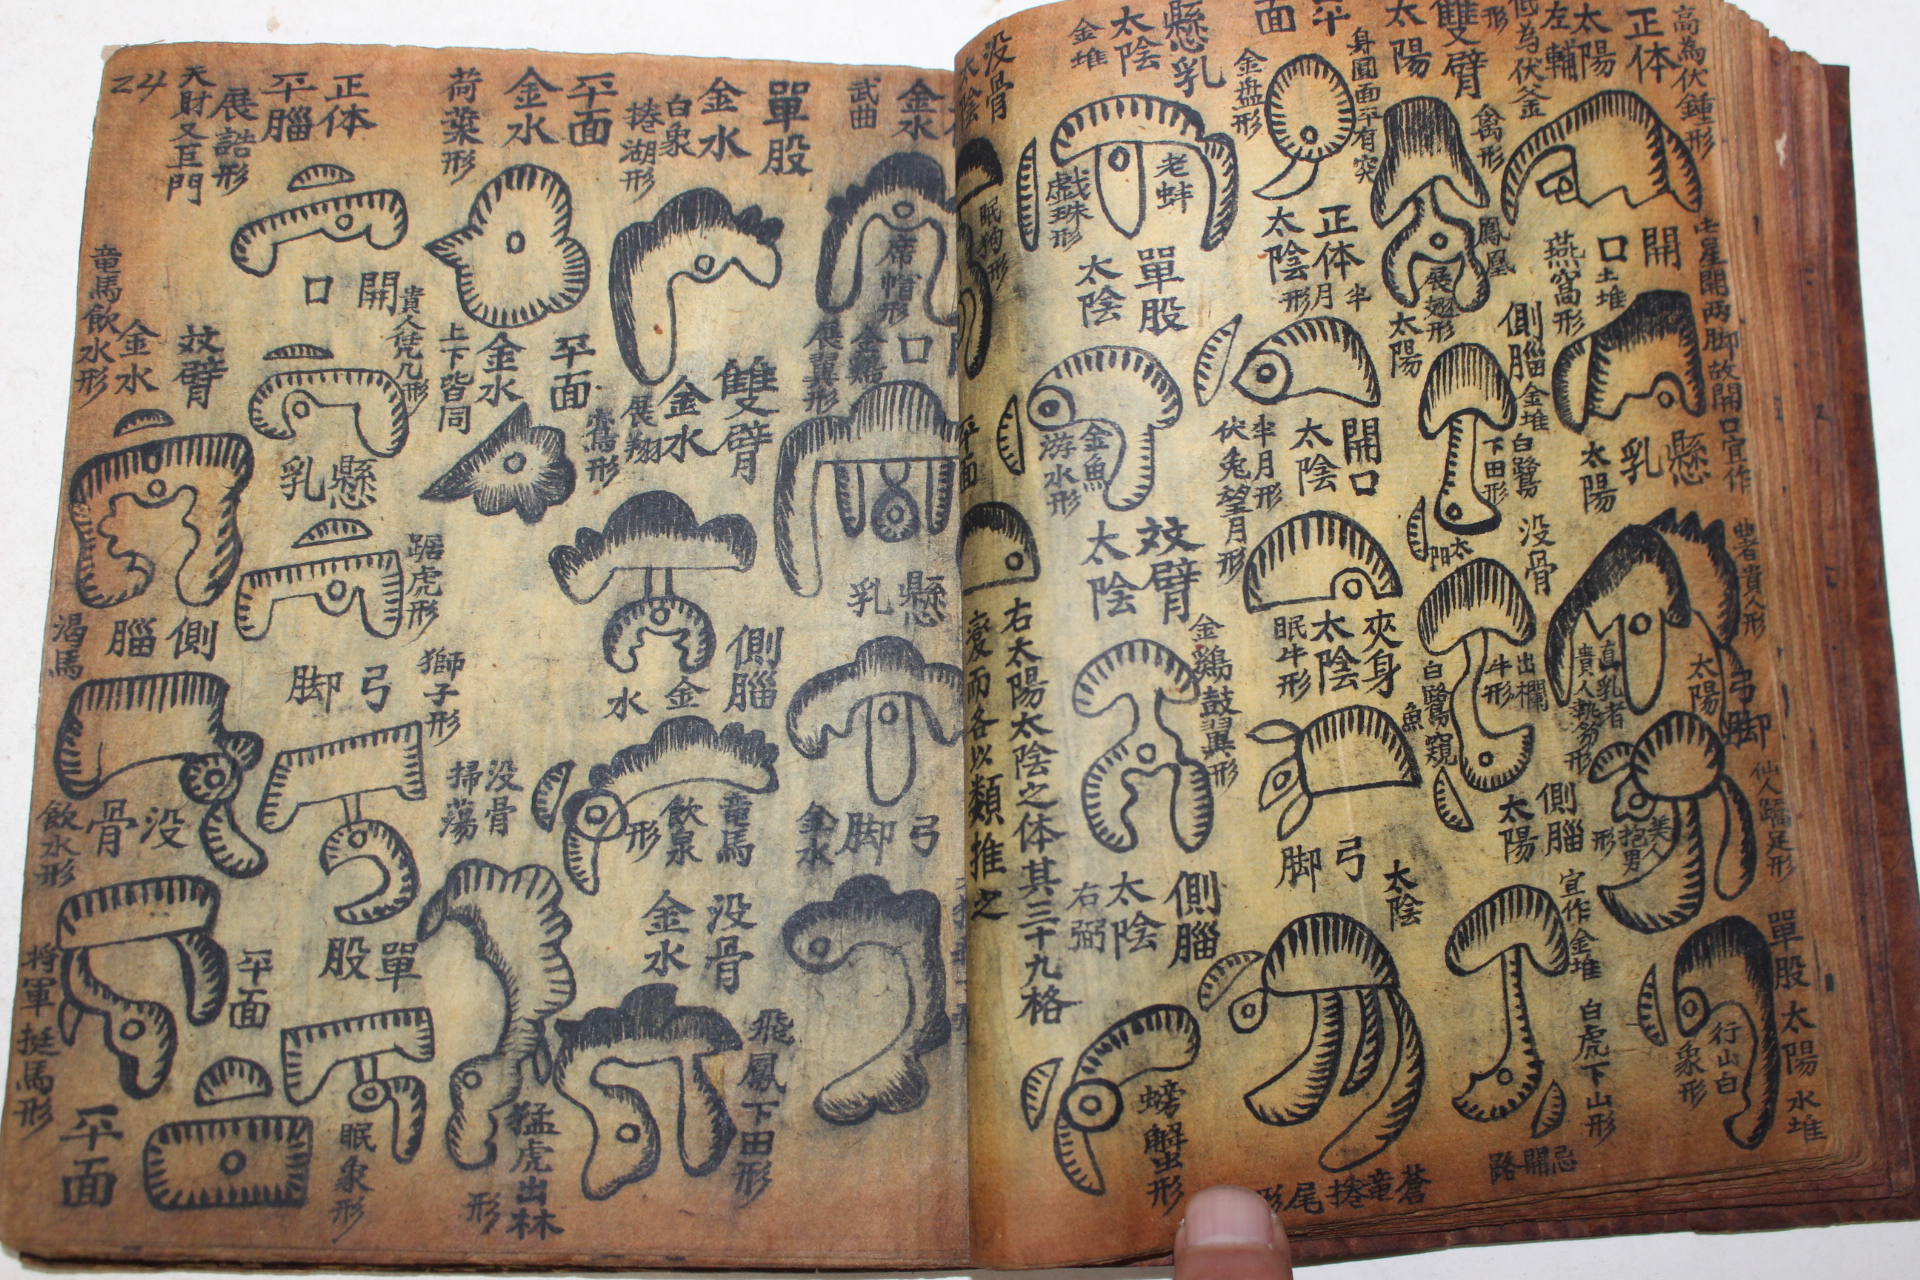 高為伏鍾形
正体
太陽
左輔
低為伏釜形
開口
七星開两脚故開口宜作
燕窩形
土堆
懸乳
太陽
貴人形
直乳者
貴人執笏形
弓脚
太陽
仙人蹻足形
美人抱男形
單股太陽
水堆
行山白象形
雙臂
太陽
禽形
鳳凰展翅形
側腦
太陽
金堆
白鷺下田形
没骨
太陽
出欄牛形
白鷺窺魚
側腦
太陽
宜作金堆
白虎下山形
忌開路
平面
身圓面平有突
金盤形
正体
太陰
半月形
開口
太陰
半月形
伏兔望月形
夾身
太陰
眠牛形
弓脚
太陰
蒼竜捲尾形
懸乳
太陰
金堆
老蚌戯珠形
單股
太陰
金魚游水形
双臂
太陰
金鷄鼓翼形
側腦
太陰
右弼
螃蠏形
没骨
太陰
眠狗形
平面
右太陽太陰之体其三十九格
変而各以類推之
金水
武曲
席帽形
口
金鷄展翼形
懸乳
弓脚
金水
單股
金水
白象捲湖形
雙臂
金水
展翔
側腦
金水
竜馬飲泉形
没骨
金水
飛鳳下田形
平面
金水
荷葉形
平面
金水
上下皆同
鶯形
没骨
掃蕩
猛虎出林形
正体
平腦
展誥形
天財又巨門
24
開口
貴人凭几形
懸乳
踞虎形
弓脚
獅子形
單股
眠象形
双臂
金水
竜馬飲水形
側腦
渇馬飲水形
没骨
將軍挺馬形
平面
平面